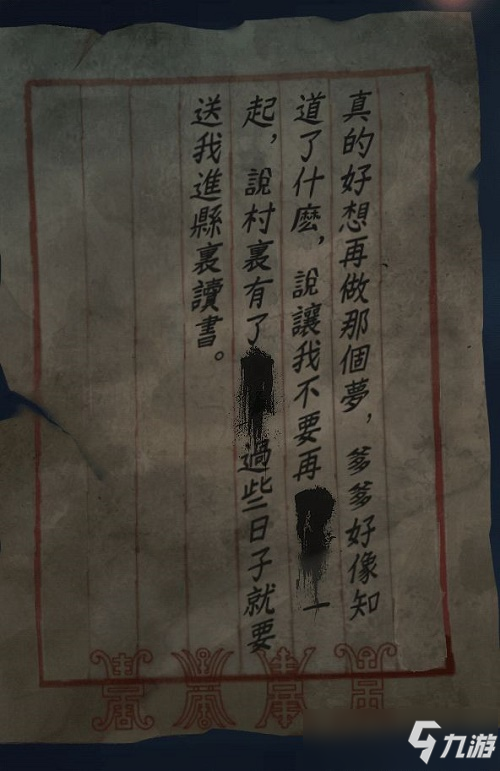 真的好想再做那個夢，爹爹好像知
道了什麽，說讓我不要再一
起，說村裏有了過些日子就要
送我進縣裏讀書。
九游